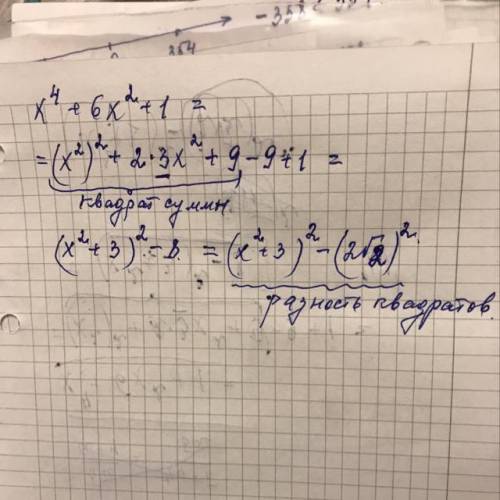 x⁴ + 6x² + 1 =
= (x²)² + 2·3x² + 9 - 9 + 1 =
квадрат суммы.
(x² + 3)² - 8 = (x² + 3)² - (2√2)²
разность квадратов.